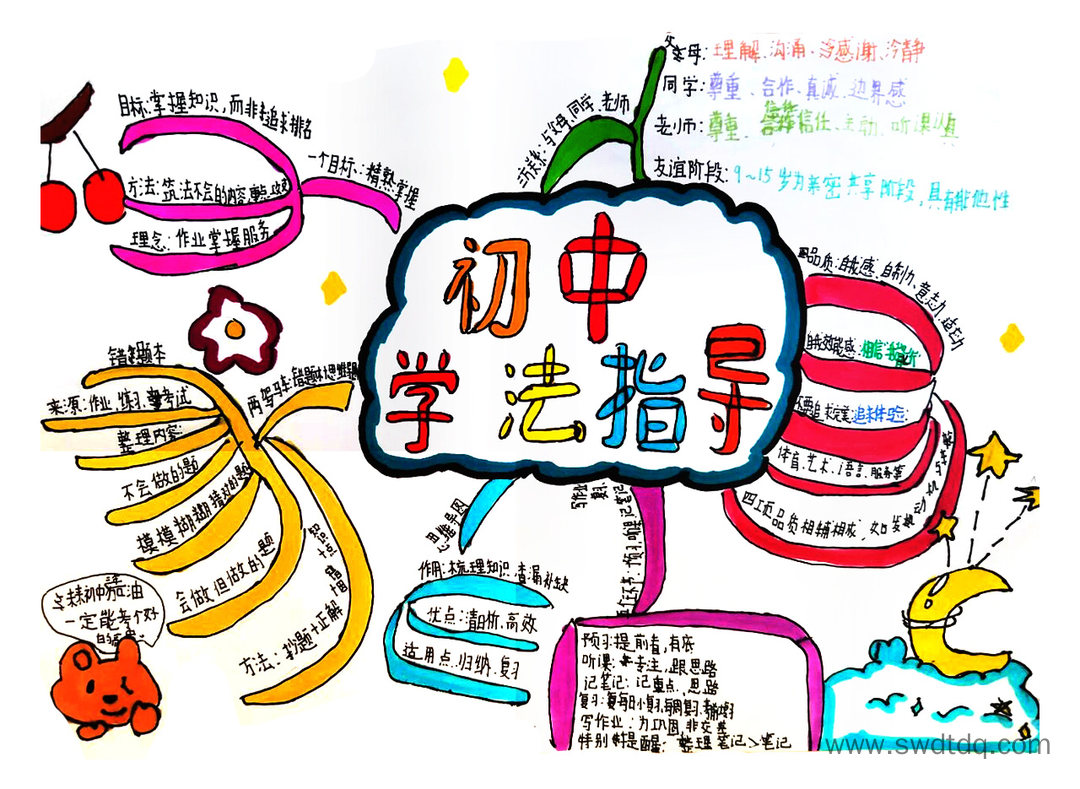 初中
学法指导
目标:掌握知识,而非追求排名
方法:筑法不会的内容,
理念:作业掌握服务
一个目标:精熟掌握
与父母、同学、老师
父母:理解、沟通、感谢、冷静
同学:尊重、合作、真诚、边界感
老师:尊重、信任、主动、听课认真
友谊阶段:9~15岁为亲密共享阶段,具有排他性
品质:自我感、自制力、意志力、
自我效能感:相信
不要追求完美
体育、艺术、语言、服务等
四项品质相辅相成,
两驾马车:错题本 思维导图
错题本
来源:作业、练习、考试
整理内容:
不会做的题
模模糊糊猜对的题
会做但做的题
方法:抄题+正解
思维导图
作用:梳理知识、查漏补缺
优点:清晰、高效
适用点:归纳、复习
预习 听课 记笔记 复习 写作业
预习:提前看,有底
听课:专注,跟思路
记笔记:记重点、思路
复习:每日小复习,每周复习,
写作业:为巩固,非交差
特别提醒:整理笔记>笔记
一定能考个好
www.swdtdq.com